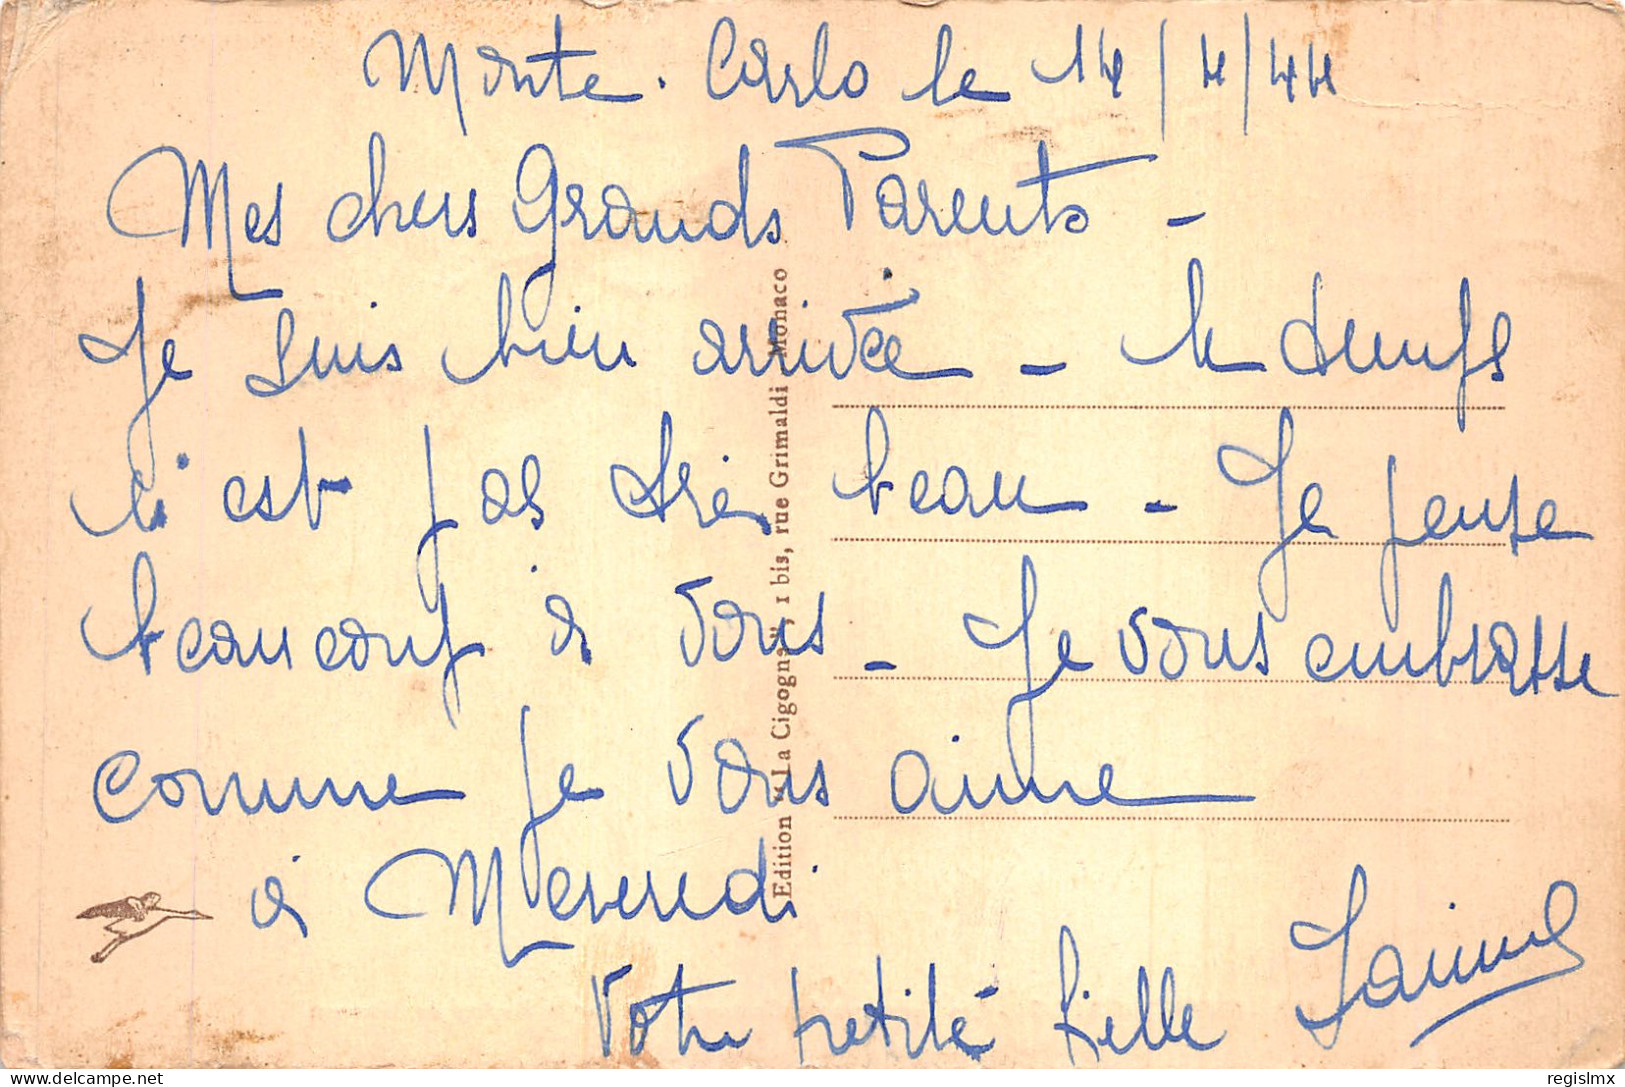 Monte-Carlo le 14/4/44
Mes chers Grands Parents -
Je suis bien arrivée - le temps
n'est pas très beau - Je pense
beaucoup à vous - Je vous embrasse
comme je vous aime
à Mercredi
Votre petite fille
Edition "La Cigogne", 1 bis, rue Grimaldi Monaco
delcampe.net
regislmx